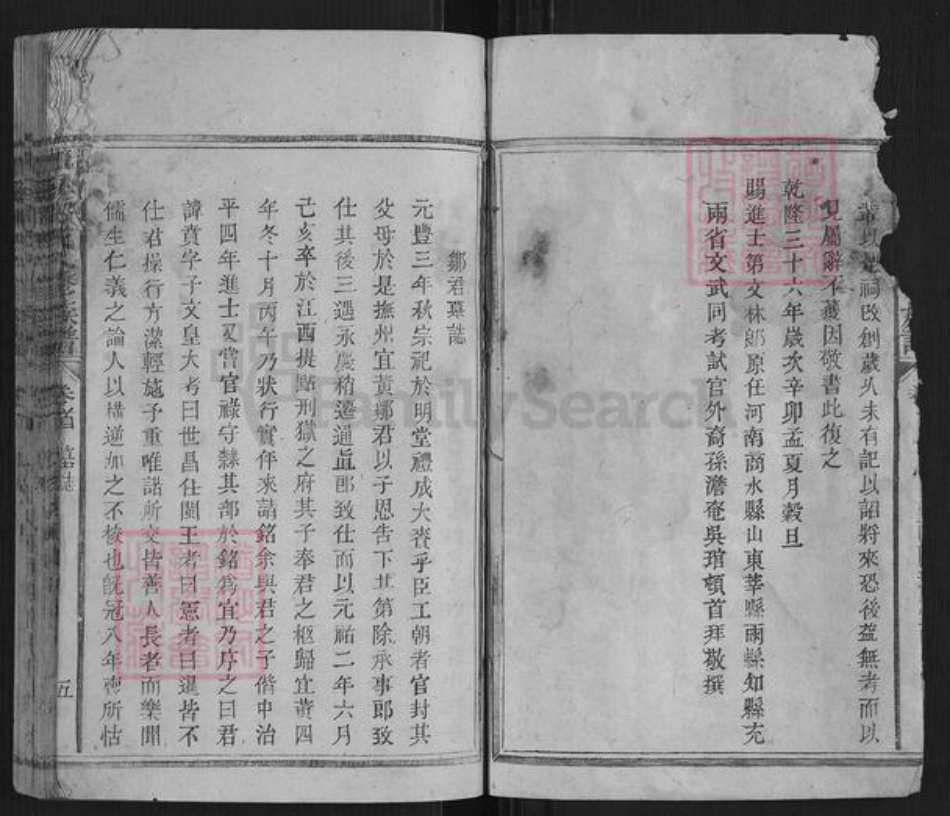 輩以建祠改創歲久未有記以詔將來恐後益無考而以
見屬辭不獲因敬書此復之
乾隆三十六年歲次辛卯孟夏月穀旦
賜進士第文林郎原任河南商水縣山東莘縣兩縣知縣充
兩省文武同考試官外裔孫澹菴吳琯頓首拜敬撰
鄒君墓誌
元豐三年秋宗祀於明堂禮成大賚乎臣工朝者官封其
父母於是撫州宜黃鄒君以子恩告下其第除承事郎致
仕其後三遇永慶稍遷通直郎致仕而以元祐二年六月
己亥卒於江西提點刑獄之府其子奉君之柩歸宜黃四
年冬十月丙午乃狀行實年來請銘余與君之子偕中治
平四年進士又嘗官祿守隸其部於銘為宜乃序之曰君
諱賁字子文皇大考曰世昌仕閩王考曰憲考曰暹皆不
仕君操行方潔輕施予重唯諾所交皆善人長者而樂聞
儒生仁義之論人以橫逆加之不校也既冠入年喪所怙
卷首
墓誌
五
FamilySearch